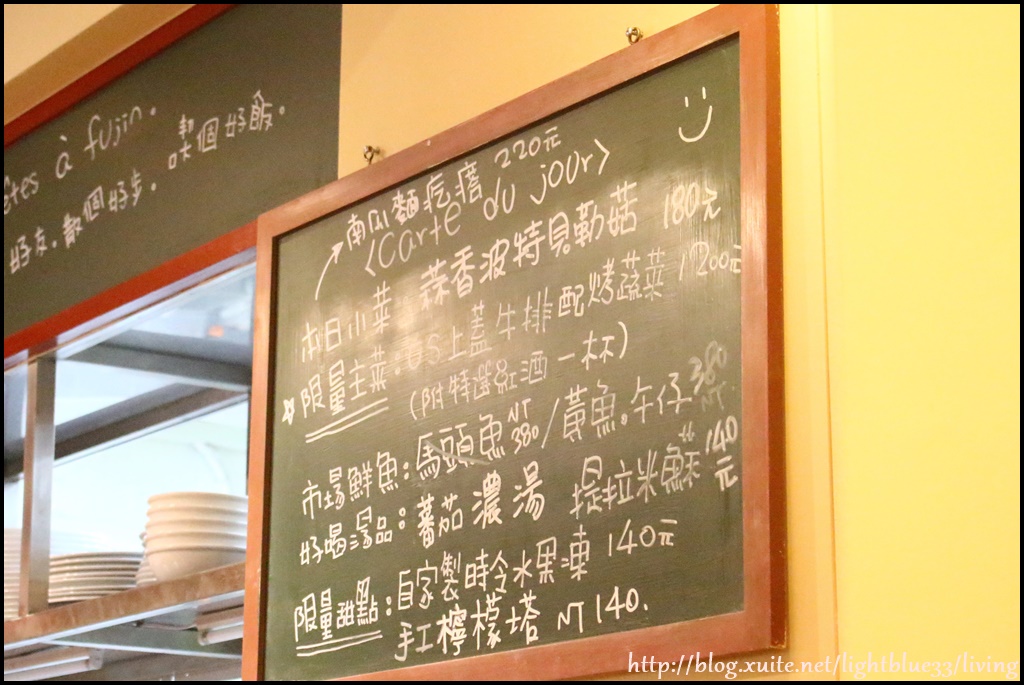 êtes à fujin。
好友。散個好步。
個好飯。
南瓜麵疙瘩 220元
<Carte du jour>
本日小菜: 蒜香波特貝勒菇 180元
限量主菜:US上蓋牛排配烤蔬菜/1200元
(附特選紅酒一杯)
市場鮮魚:馬頭魚 NT 380/黃魚。午仔 380 NT
好喝湯品:蕃茄濃湯 提拉米蘇 140元
限量甜點:自家製時令水果凍 140元
手工檸檬塔 NT 140.
http://blog.xuite.net/lightblue33/living